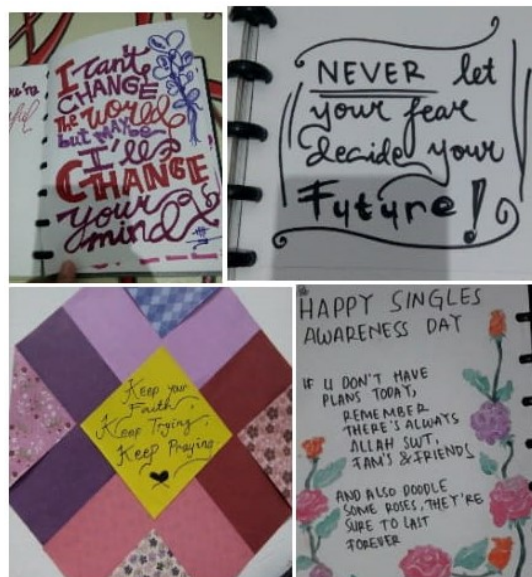 I can't
CHANGE
the world
but MAYBE
I'll
CHANGE
your
mind
NEVER let
your fear
decide your
Future!
Keep your
Faith,
Keep Trying,
Keep Praying
HAPPY SINGLES
AWARENESS DAY
IF U DON'T HAVE
PLANS TODAY,
REMEMBER
THERE'S ALWAYS
ALLAH SWT,
FAM'S & FRIENDS
AND ALSO DOODLE
SOME ROSES, THEY'RE
SURE TO LAST
FOREVER